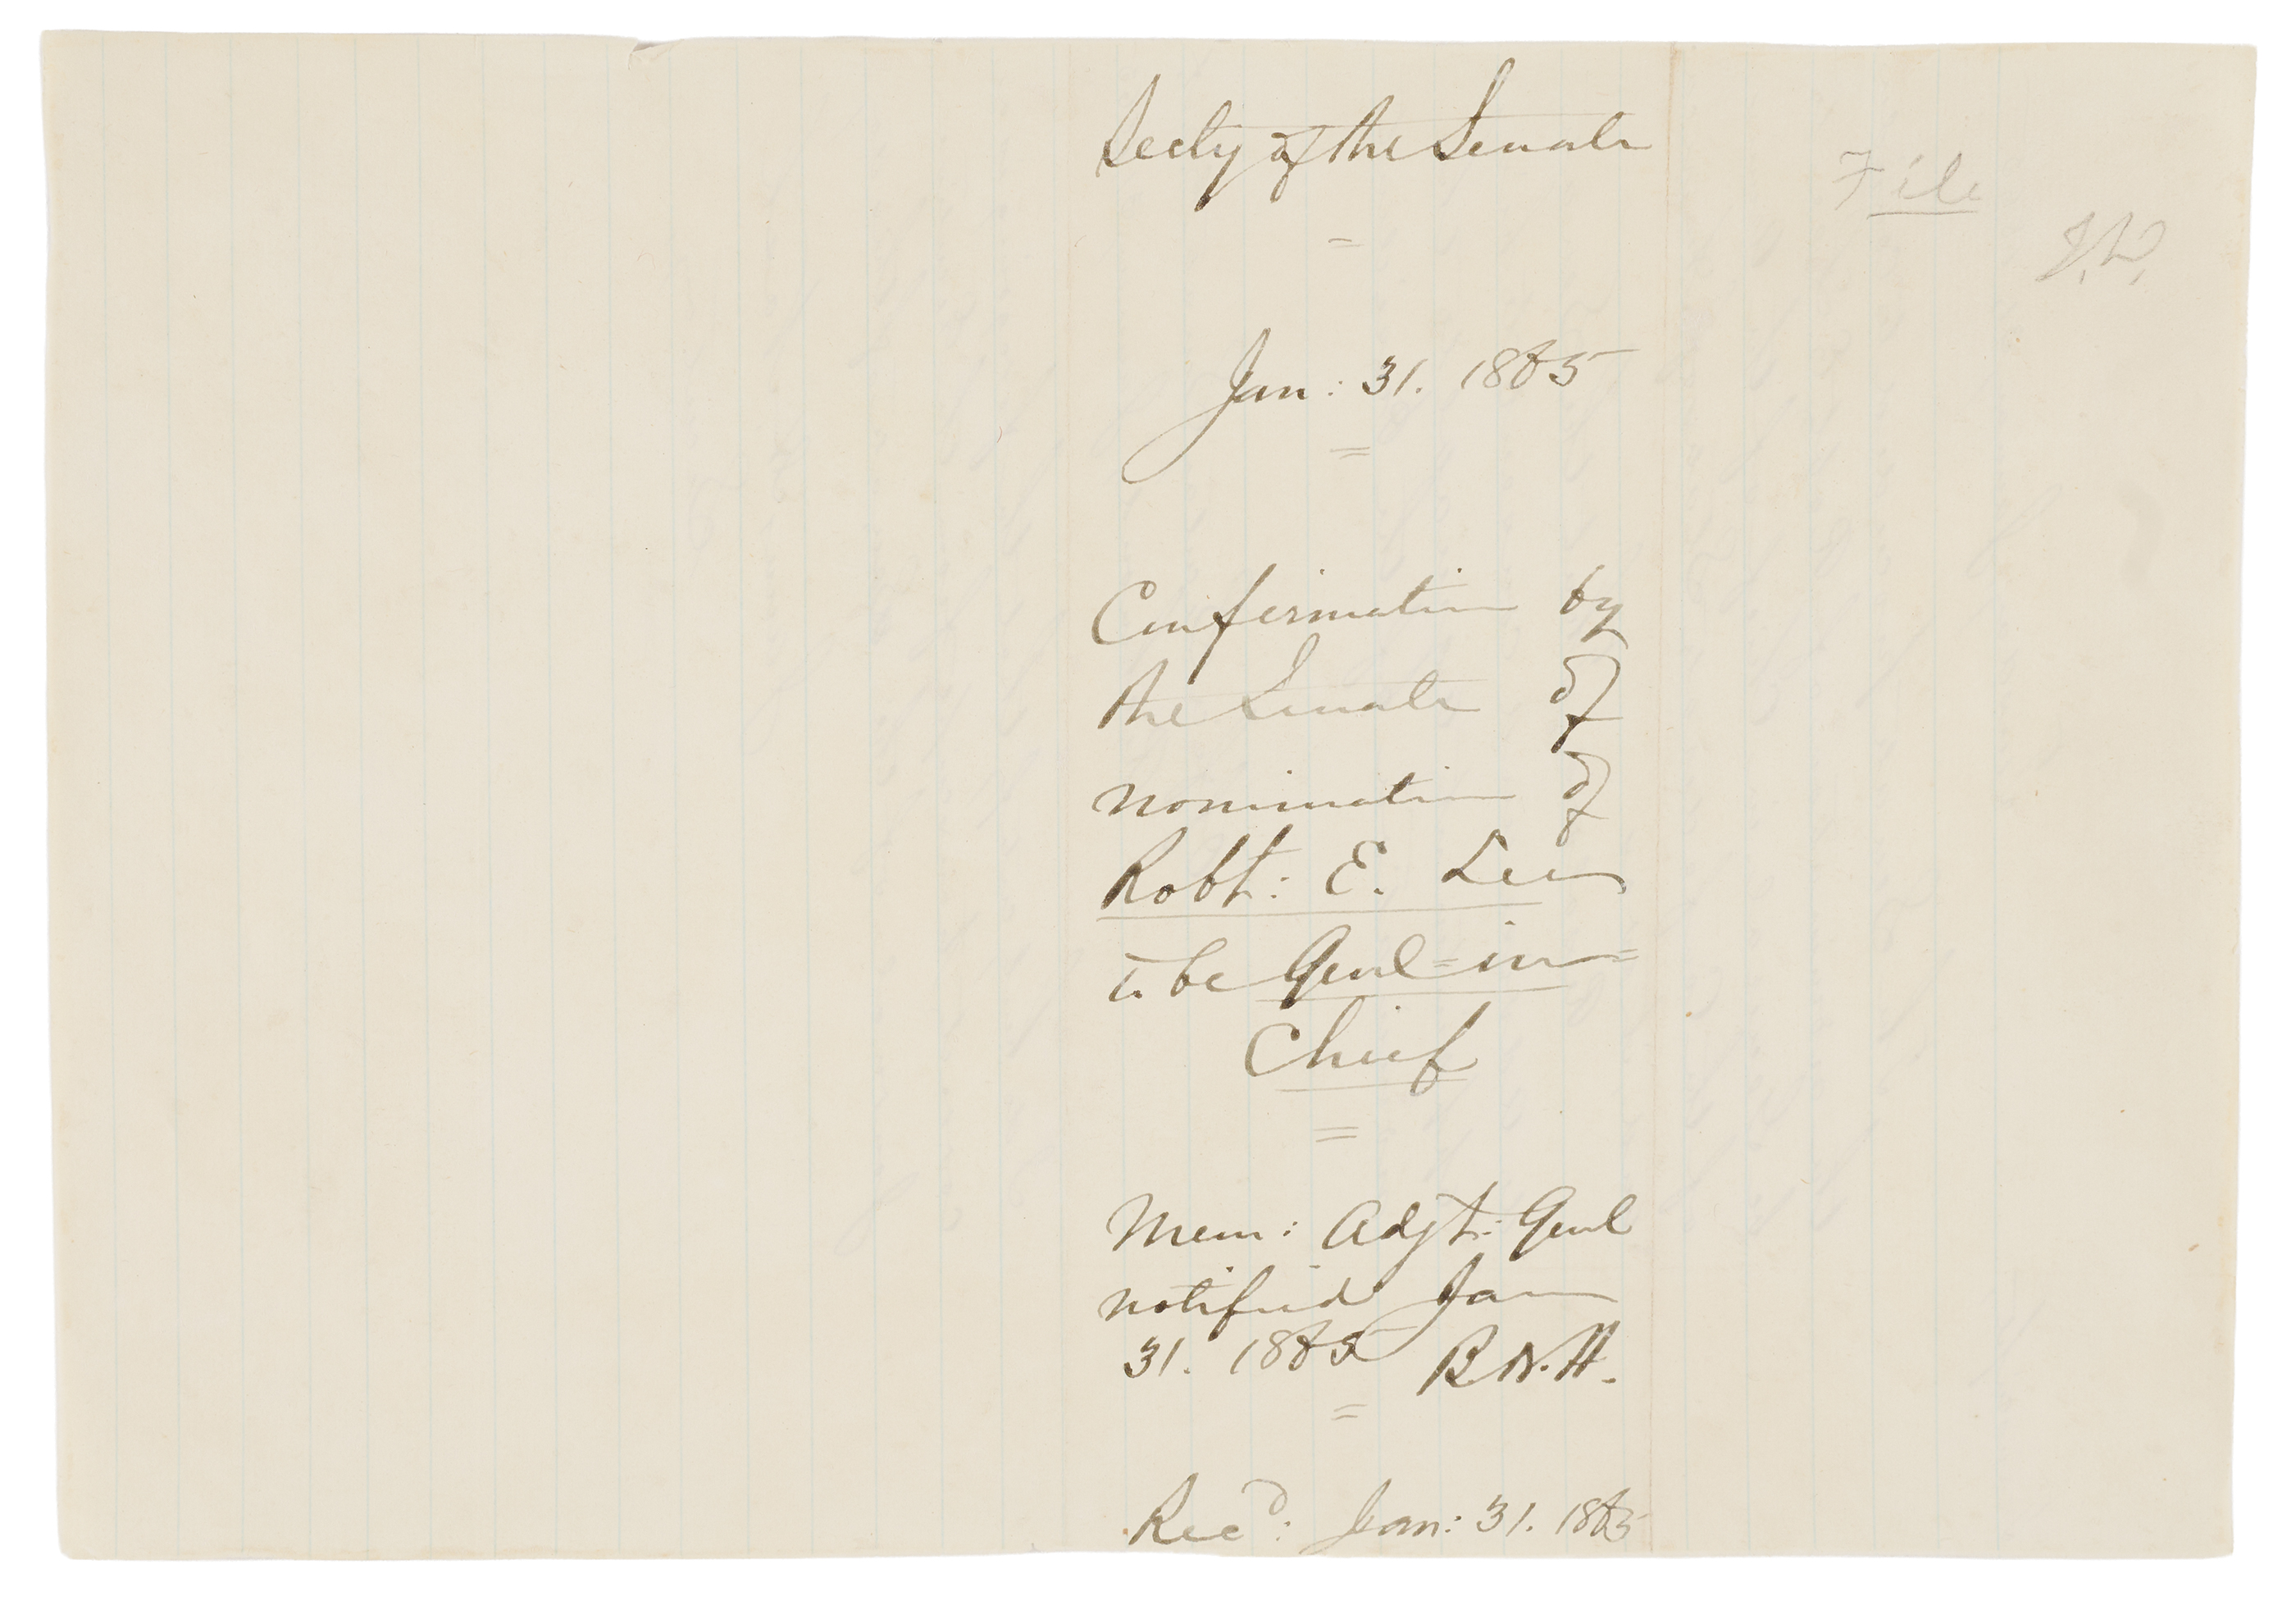 Secty of the Senate
=
Jan: 31. 1865
=
Confirmation by
the Senate of
nomination of
Robt: E. Lee
to be Genl=in=
Chief
=
Mem: Adjt: Genl
notified Jan
31. 1865 B.N.H.
=
Recd: Jan: 31. 1865
File